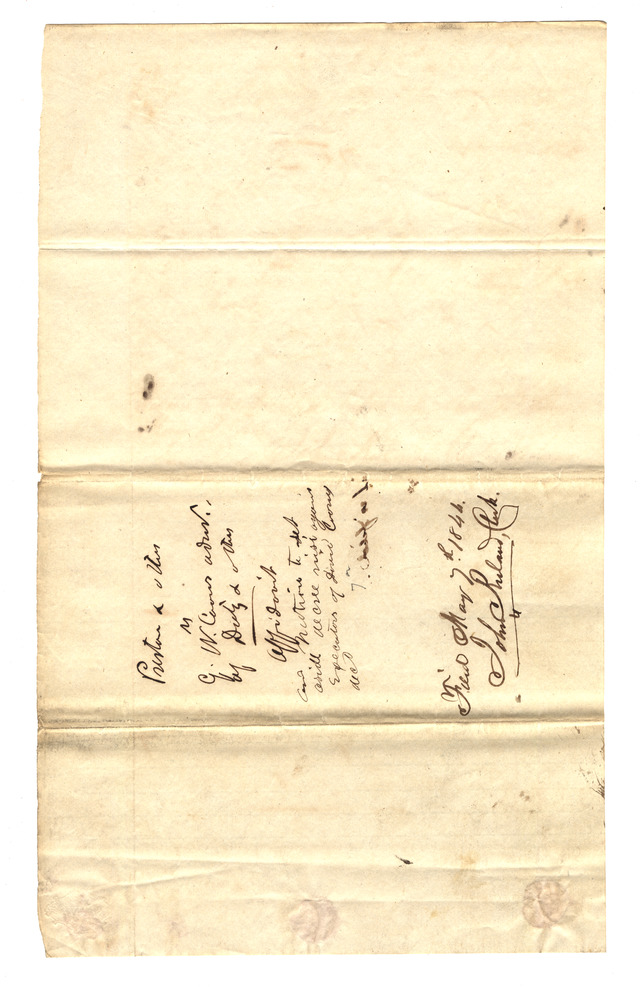 Preston & others
vs
G. W. Coons admr.
by & others
Affidavit
and Petition to set
aside decree nisi against
Executors of David Coons
decd
Filed May 7th 1844.
John Ruland, Clerk.